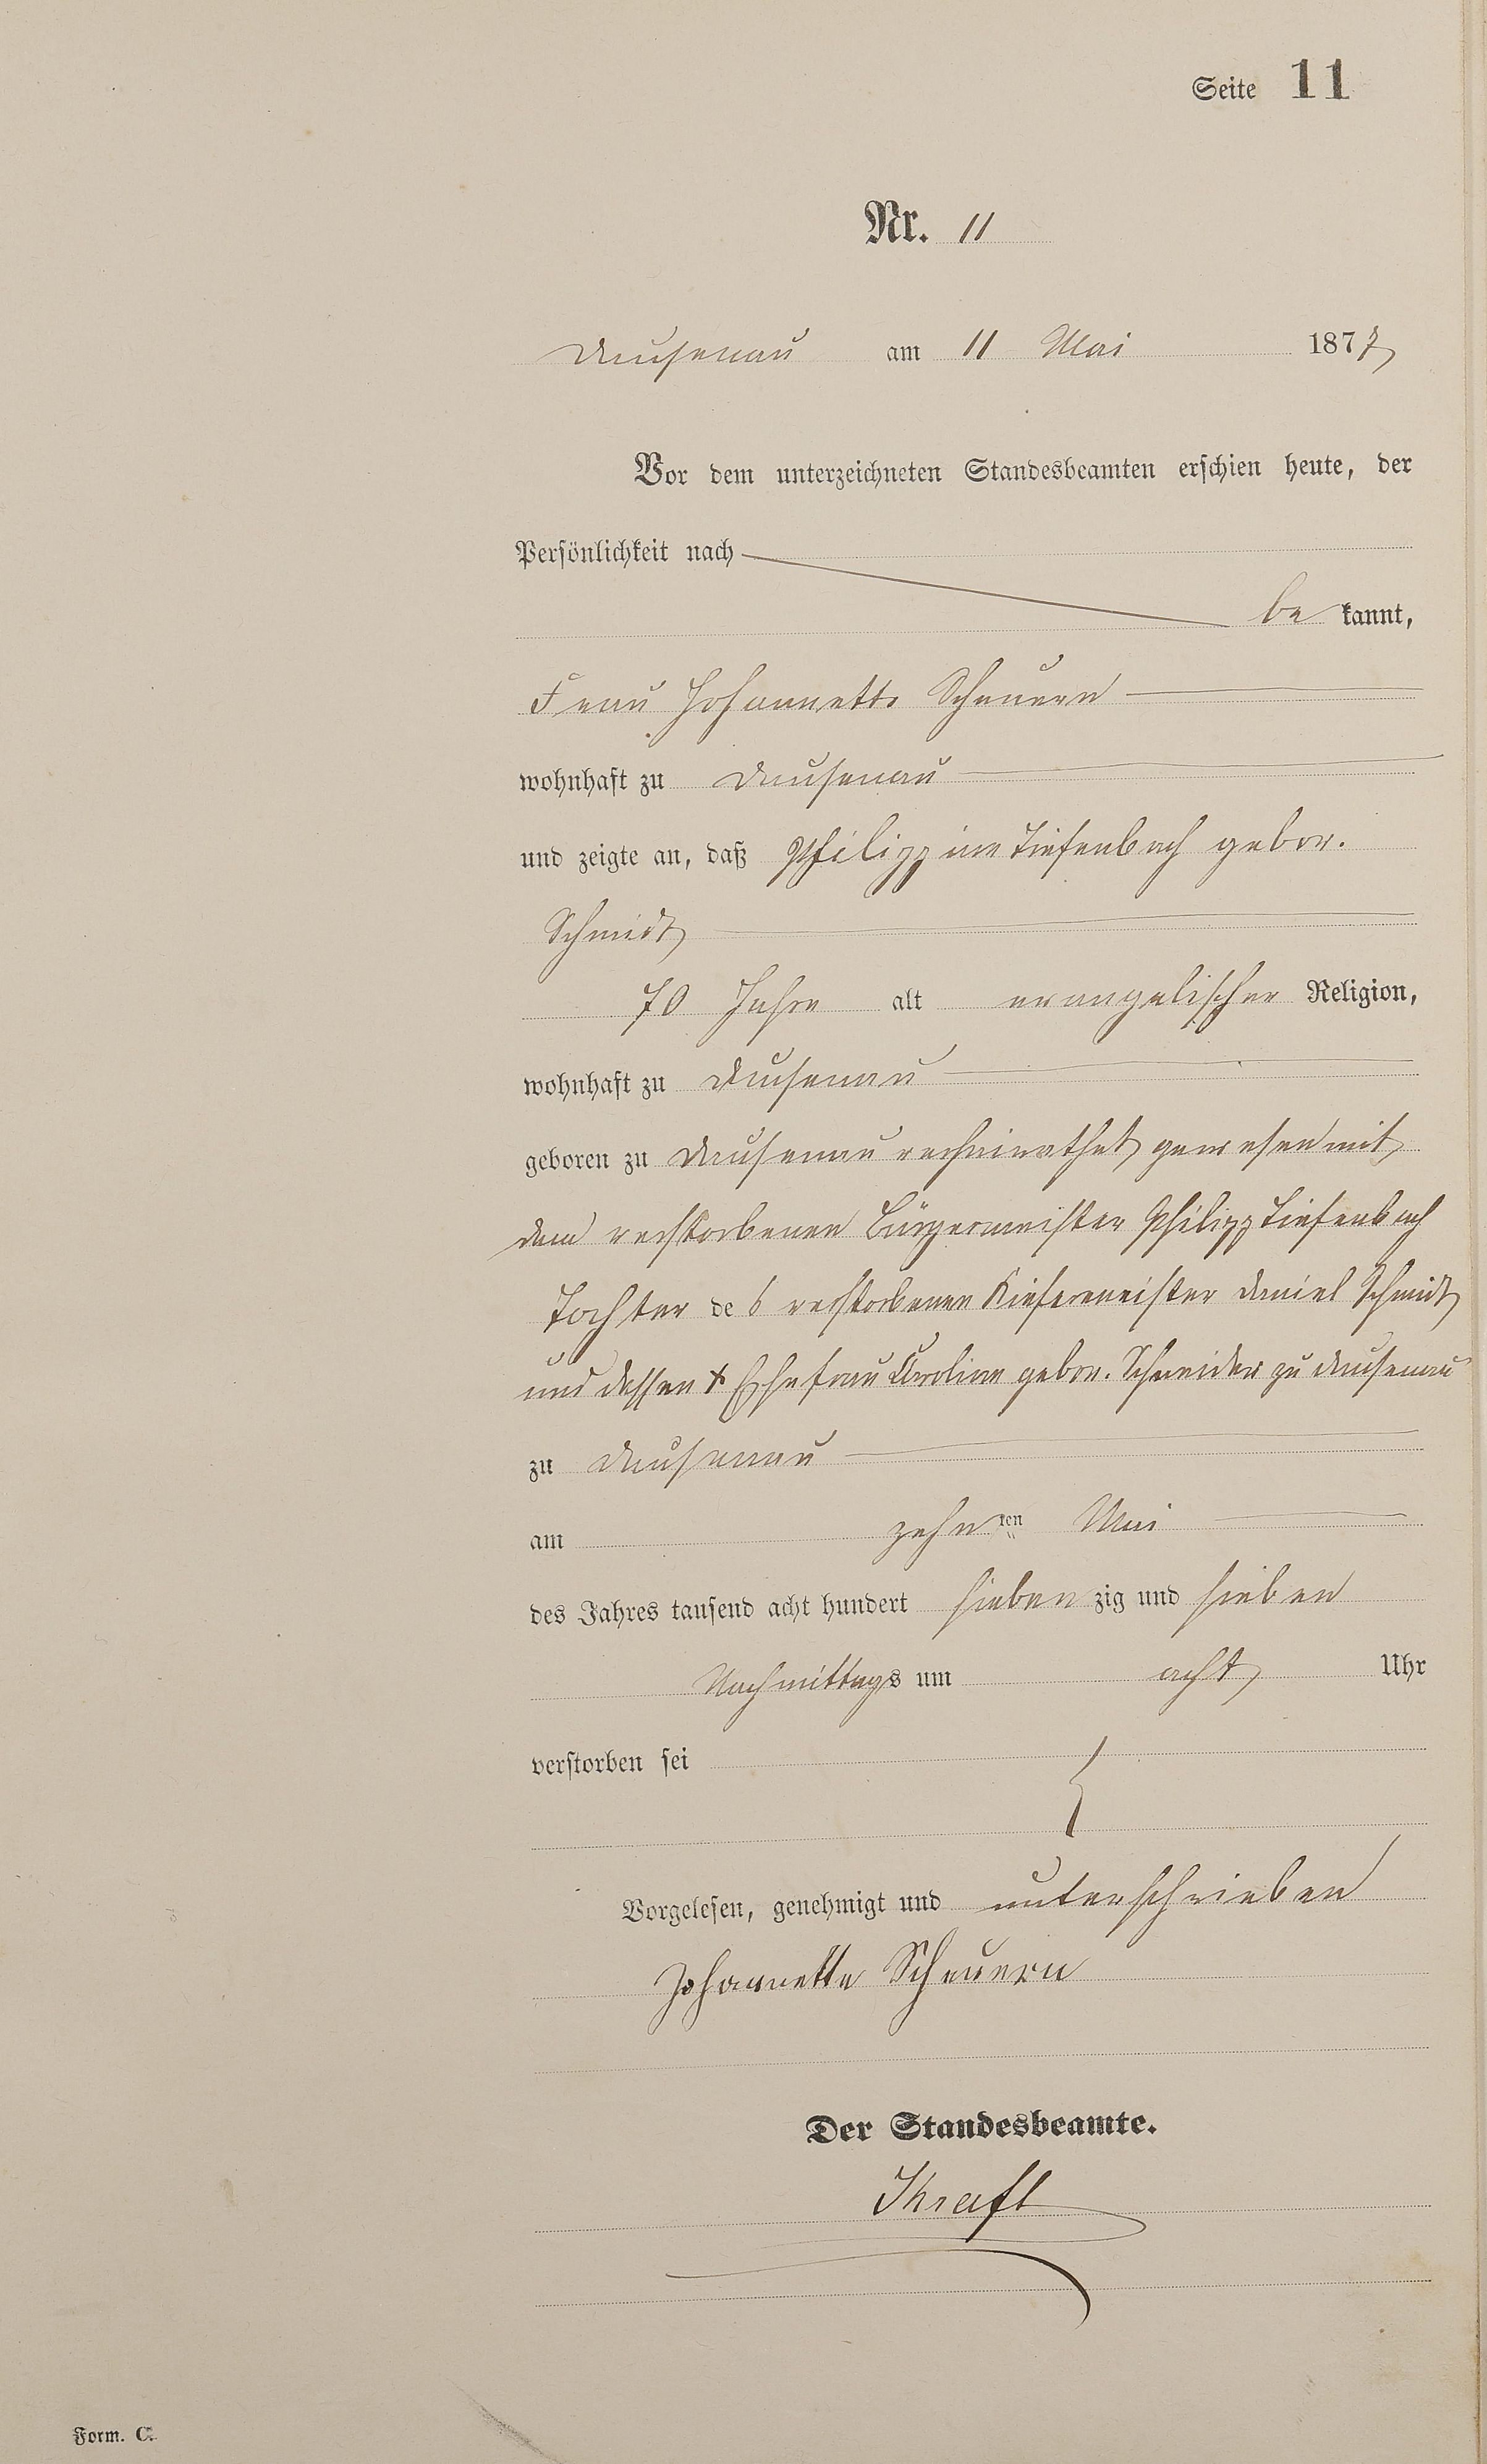 Seite 11
Nr. 11
Dausenau am 11 Mai 1877
Vor dem unterzeichneten Standesbeamten erschien heute, der
Persönlichkeit nach
be kannt,
Frau Johannette Scheuern
wohnhaft zu Dausenau
und zeigte an, daß Philippine Tiefenbach gebor.
Schmidt
70 Jahre alt evangelischer Religion,
wohnhaft zu Dausenau
geboren zu Dausenau verheirathet gewesen mit
dem verstorbenen Bürgermeister Philipp Tiefenbach
Tochter des verstorbenen Kiefermeister Daniel Schmidt
und dessen † Ehefrau Caroline gebor. Schneider zu Dausenau
zu Dausenau
am zehnten Mai
des Jahres tausend acht hundert siebenzig und sieben
Nachmittags um acht Uhr
verstorben sei
Vorgelesen, genehmigt und unterschrieben
Johannette Scheuern
Der Standesbeamte.
Kraft
Form. C.